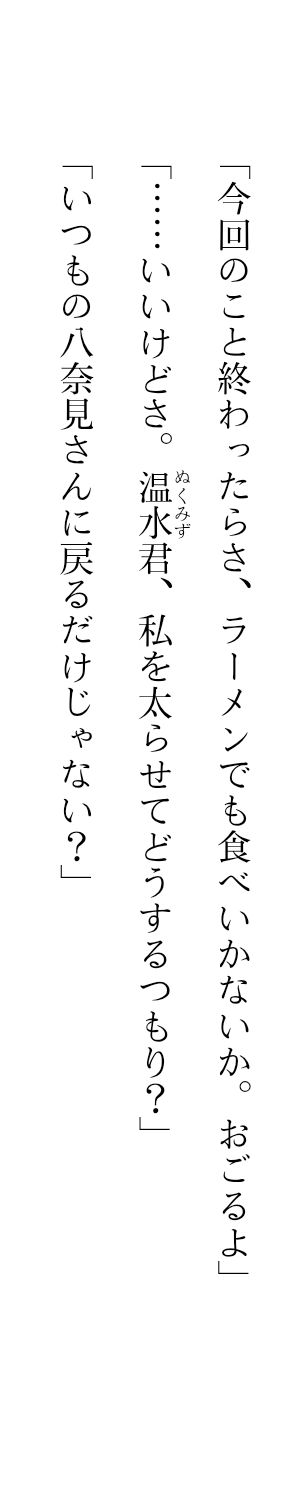 「今回のこと終わったらさ、ラーメンでも食べいかないか。おごるよ」
「……いいけどさ。温水君、私を太らせてどうするつもり？」
ぬくみず
「いつもの八奈見さんに戻るだけじゃない？」